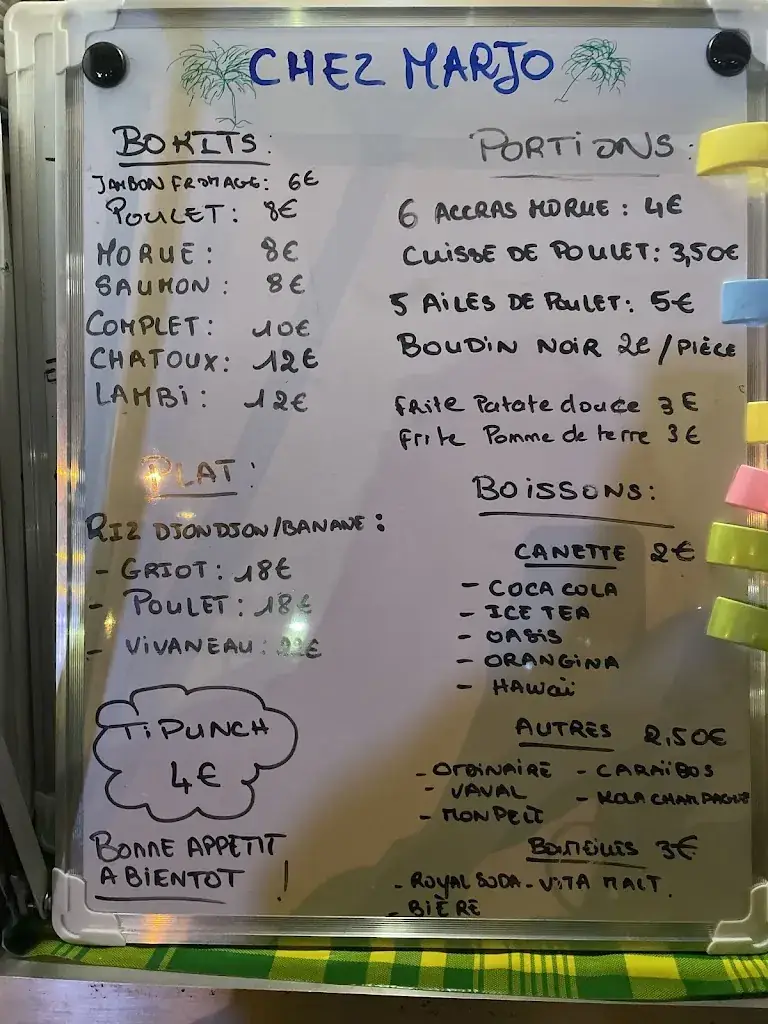 CHEZ MARJO
BOKITS:
JAMBON FROMAGE: 6€
POULET: 8€
MORUE: 8€
SAUMON: 8€
COMPLET: 10€
CHATOUX: 12€
LAMBI: 12€
PLAT:
RIZ DJONDJON/BANANE:
- GRIOT: 18€
- POULET: 18€
- VIVANEAU: 22€
Ti PUNCH
4€
BONNE APPETIT
A BIENTOT !
PORTIONS:
6 ACCRAS MORUE: 4€
CUISSE DE POULET: 3,50€
5 AILES DE POULET: 5€
BOUDIN NOIR 2€/PIÈCE
FRITE Patate douce 3€
FRITE Pomme de terre 3€
BOISSONS:
CANETTE 2€
- COCA COLA
- ICE TEA
- OASIS
- ORANGINA
- HAWaï
AUTRES 2,50€
- ORDINAIRE - CARAÏBOS
- VAVAL - KOLA CHAMPAGNE
- MONPELI
3€
- ROYAL SODA - VITA MALT.
- BIÈRE